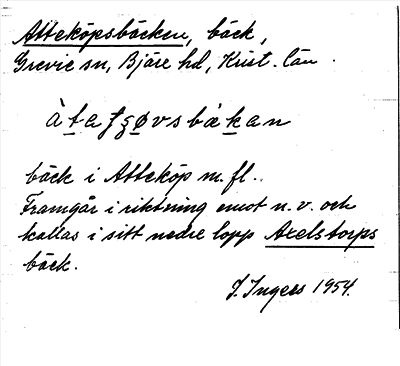 Atteköpsbäcken, bäck,
Grevie sn, Bjäre hd, Krist. län.
bäck i Atteköp m. fl..
Framgår i riktning emot n. v. och
kallas i sitt nedre lopp Axelstorps
bäck.
I. Ingers 1954.